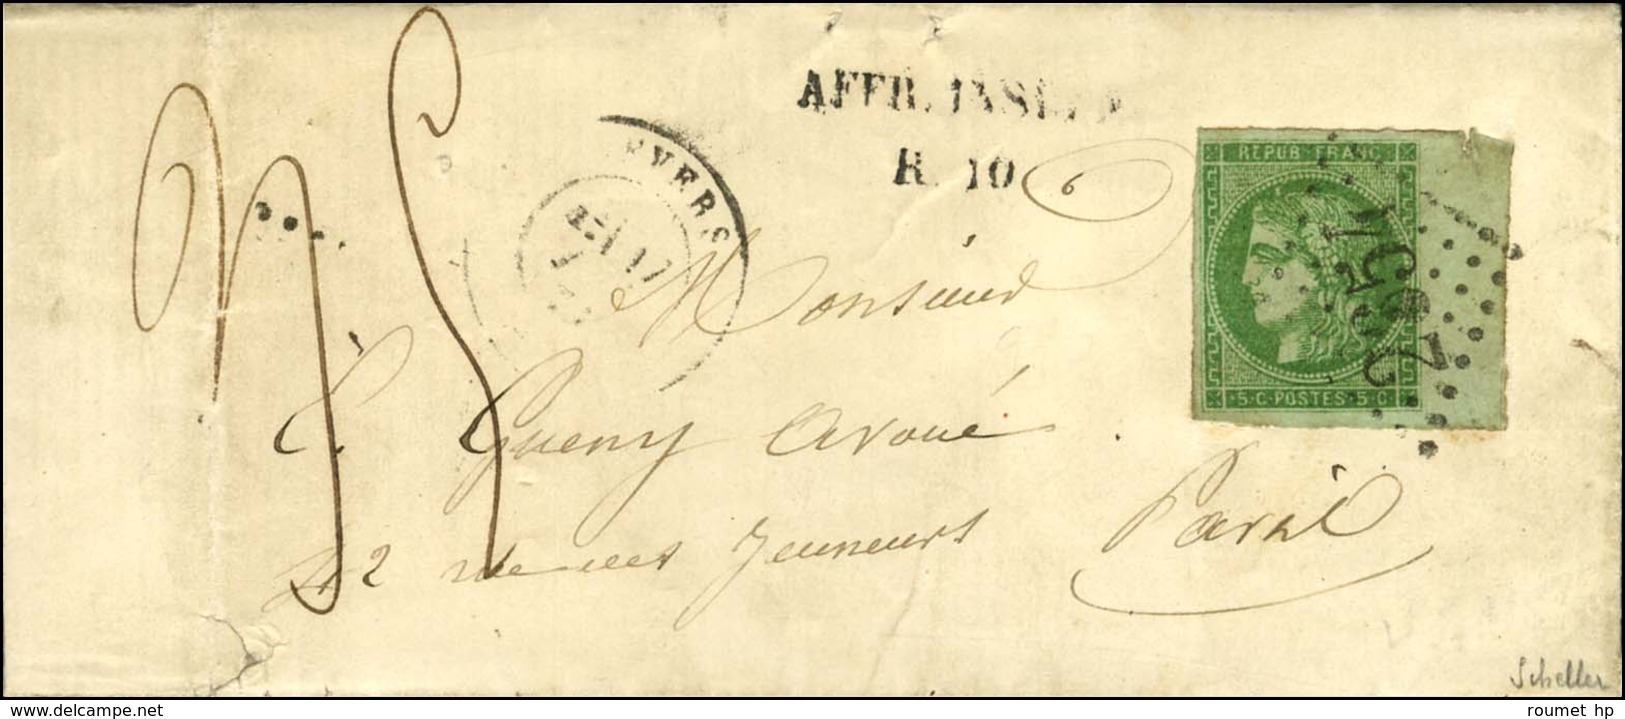 AFFR. INSUF.
R. 10
NEVERS
17
REPUB FRANC
2654
5·C·POSTES·5·C
Monsieur
Gueny avoué
42 rue des Jeuneurs Paris
Scheller
www.delcampe.net
roumet hp